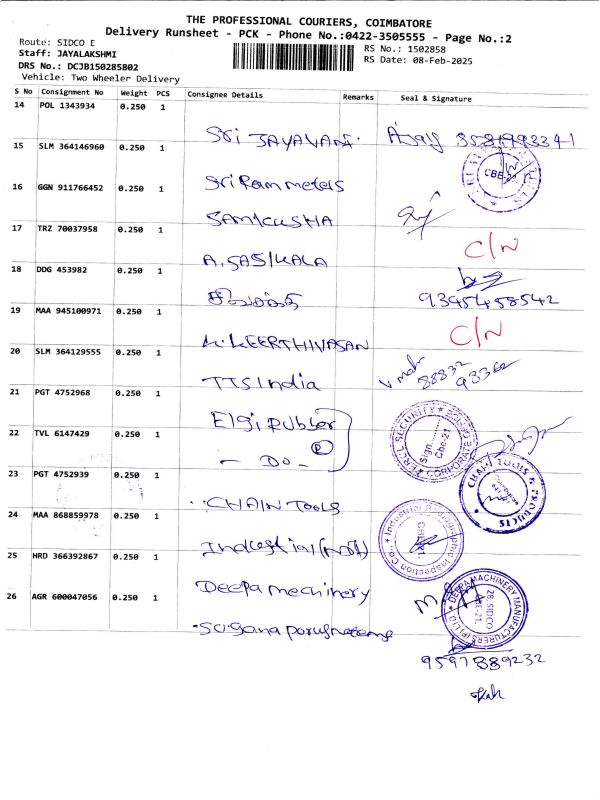 THE PROFESSIONAL COURIERS, COIMBATORE
Delivery Runsheet - PCK - Phone No.:0422-3505555 - Page No.:2
Route: SIDCO E
RS No.: 1502858
Staff: JAYALAKSHMI
RS Date: 08-Feb-2025
DRS No.: DCJB150285802
Vehicle: Two Wheeler Delivery
S No Consignment No Weight PCS Consignee Details Remarks Seal & Signature
14 POL 1343934 0.250 1
Sri JAYAVANI Ajay
15 SLM 364146960 0.250 1
Sri Ram meters CBE-21
16 GGN 911766452 0.250 1
SAMKUSHA
17 TRZ 70037958 0.250 1
A. SASIKALA C/N
18 DDG 453982 0.250 1
93954 58542
19 MAA 945100971 0.250 1
K. KEERTHIVASAN C/N
20 SLM 364129555 0.250 1
TTS India 88832 93362
21 PGT 4752968 0.250 1
Elgi Rubber
22 TVL 6147429 0.250 1
- DO - SECURITY CORPORATE Sign Cbe-21
23 PGT 4752939 0.250 1
CHAIN TOOLS CHAIN TOOLS & PRODUCTS
24 MAA 868859978 0.250 1
Industrial (NDT) Industrial Radiographic Inspection Co.
25 HRD 366392867 0.250 1
Deepa machinery DEEPA MACHINERY MANUFACTURERS (P) LTD 28 SIDCO CBE-21
26 AGR 600047056 0.250 1
9597889232